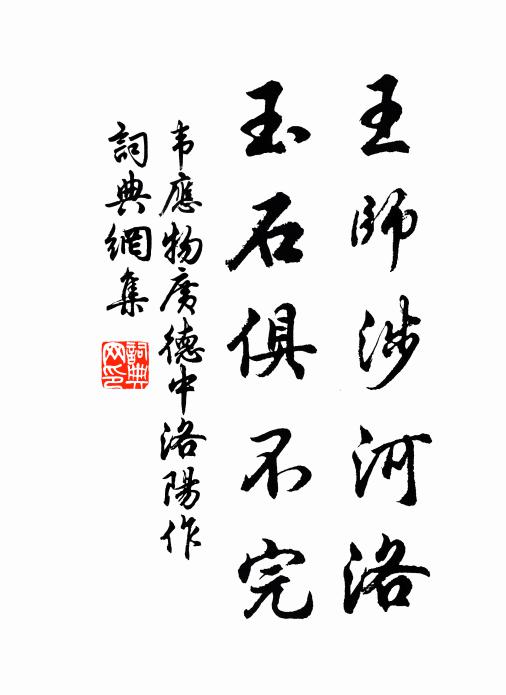 王師涉河洛
玉石俱不完
韦應物廣德中洛陽作
詞典網集
詞典網印